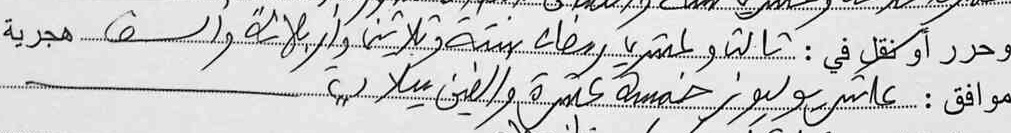 وحرر أو نقل في : ثالث وعشرين رمضان ستة وثلاثين وأربعمائة وألف هجرية
موافق : عاشر يوليوز خمسة عشرة وألفين ميلادية